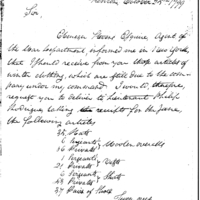 October 25th 1799
Sir,
Ebenezer Stevens Esquire, Agent of
the War department, informed me in New York,
that I should receive from you those articles of
winter clothing, which are still due to the com-
pany under my command. I would, therefore,
request you to deliver to Lieutenant Philip
Rodrigue, taking his receipt for the same,
the following articles
35 Coats
6 Sergeants
Privates Woolen overalls
1 Sergeants
21 Privates Vests
6 Sergeants Shirts
Privates
37 Pairs of Shoes